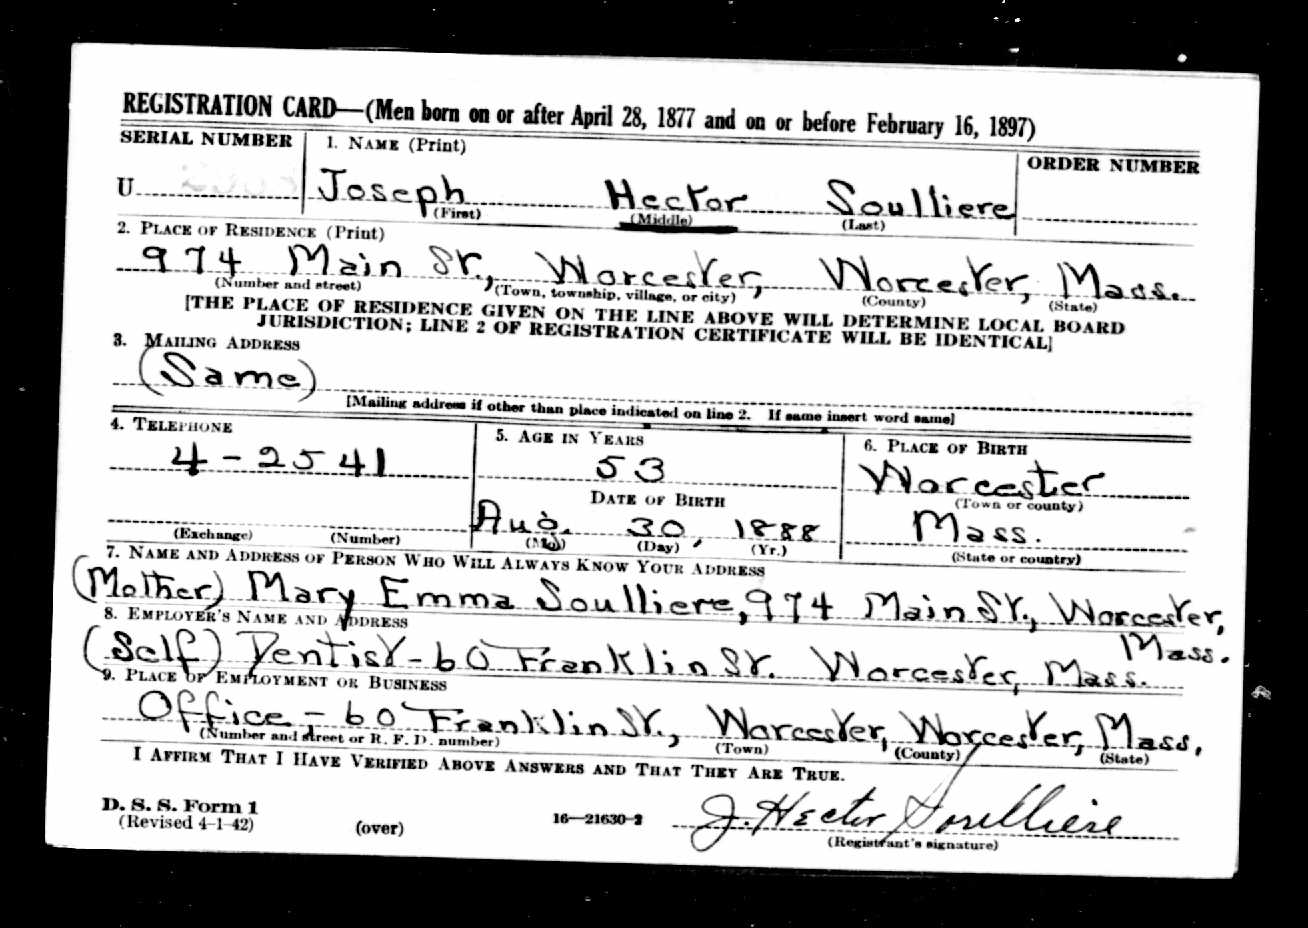 REGISTRATION CARD—(Men born on or after April 28, 1877 and on or before February 16, 1897)
SERIAL NUMBER 1. NAME (Print) ORDER NUMBER
U Joseph Hector Soulliere
(First) (Middle) (Last)
2. PLACE OF RESIDENCE (Print)
974 Main St., Worcester, Worcester, Mass.
(Number and street) (Town, township, village, or city) (County) (State)
[THE PLACE OF RESIDENCE GIVEN ON THE LINE ABOVE WILL DETERMINE LOCAL BOARD
JURISDICTION; LINE 2 OF REGISTRATION CERTIFICATE WILL BE IDENTICAL]
3. MAILING ADDRESS
(Same)
[Mailing address if other than place indicated on line 2. If same insert word same]
4. TELEPHONE 5. AGE IN YEARS 6. PLACE OF BIRTH
4-2541 53 Worcester
DATE OF BIRTH (Town or county)
Aug. 30, 1888 Mass.
(Exchange) (Number) (Mo.) (Day) (Yr.) (State or country)
7. NAME AND ADDRESS OF PERSON WHO WILL ALWAYS KNOW YOUR ADDRESS
(Mother) Mary Emma Soulliere, 974 Main St., Worcester,
Mass.
8. EMPLOYER'S NAME AND ADDRESS
(Self) Dentist-60 Franklin St. Worcester, Mass.
9. PLACE OF EMPLOYMENT OR BUSINESS
Office-60 Franklin St., Worcester, Worcester, Mass.
(Number and street or R. F. D. number) (Town) (County) (State)
I AFFIRM THAT I HAVE VERIFIED ABOVE ANSWERS AND THAT THEY ARE TRUE.
D. S. S. Form 1
(Revised 4-1-42) (over) 16—21630-2 J. Hector Soulliere
(Registrant's signature)